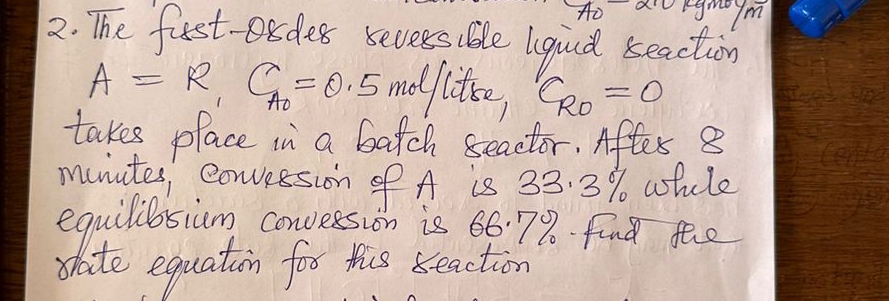 AO = 210 kgmol/m
2. The first-order reversible liquid reaction
A = R, C_AO = 0.5 mol/litre, C_RO = 0
takes place in a batch reactor. After 8
minutes, conversion of A is 33.3% while
equilibrium conversion is 66.7%. Find the
rate equation for this reaction